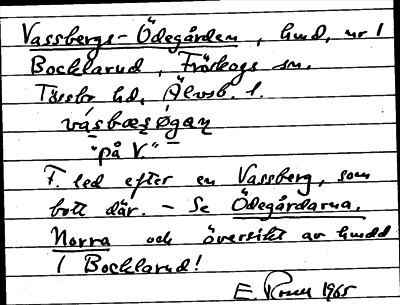 Vassbergs-Ödegården, hmd, nr 1
Bocklarud, Fröskogs sn.
Tössbo hd, Älvsb. l.
vásbæṣ øgaṇ
"på V."
F. led efter en Vassberg, som
bott där. – Se Ödegårdarna,
Norra och översikt av hmdd
/ Bocklarud!
E. 1965